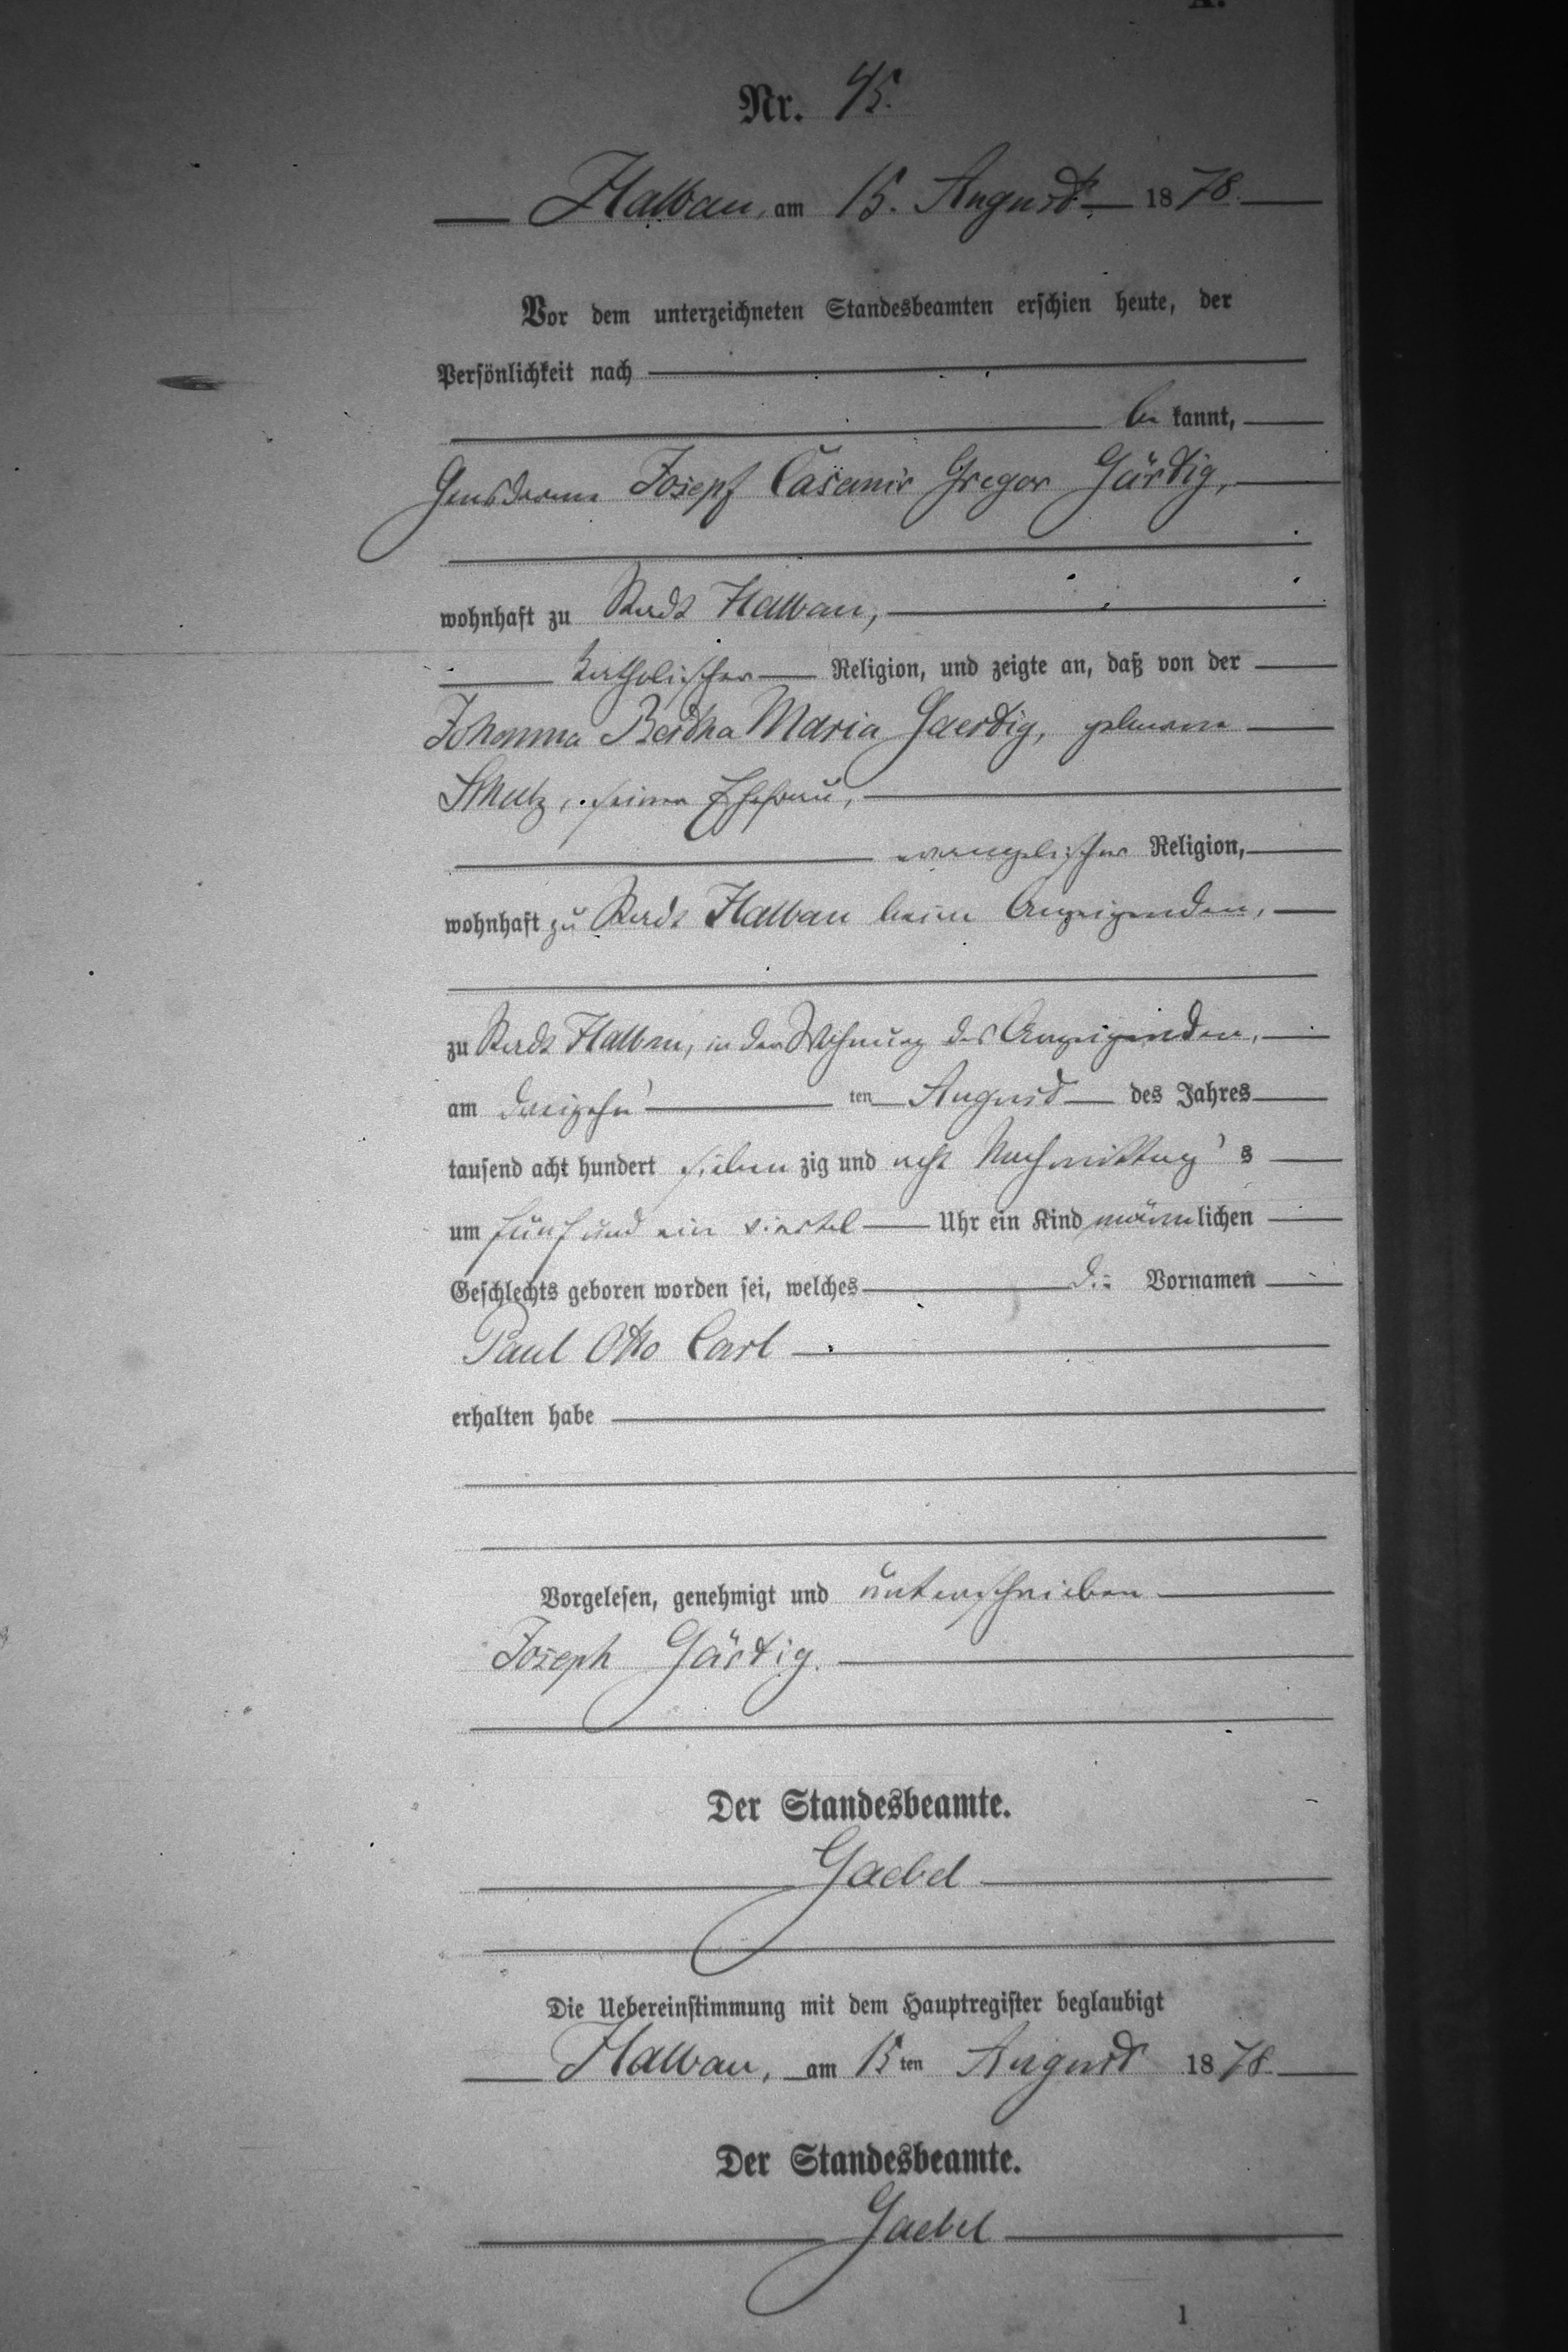 A.
Nr. 45.
Halbau, am 15. August 1878.
Vor dem unterzeichneten Standesbeamten erschien heute, der
Persönlichkeit nach
be kannt,
Gensdarm Josepf Casimir Gregor Gärtig,
wohnhaft zu Stadt Halbau,
katholischer Religion, und zeigte an, daß von der
Johanna Bertha Maria Gaertig, geborene
seiner Ehefrau,
evangelischer Religion,
wohnhaft zu Stadt Halbau beim Anzeigenden,
zu Stadt Halbau, in der Wohnung des Anzeigenden,
am dreizehn ten August des Jahres
tausend acht hundert sieben zig und acht Nachmittag's
um fünf und ein viertel Uhr ein Kind männlichen
Geschlechts geboren worden sei, welches die Vornamen
Paul Otto Carl
erhalten habe
Vorgelesen, genehmigt und unterschrieben
Joseph Gärtig.
Der Standesbeamte.
Gaebel
Die Uebereinstimmung mit dem Hauptregister beglaubigt
Halbau, am 15ten August 1878.
Der Standesbeamte.
Gaebel
1